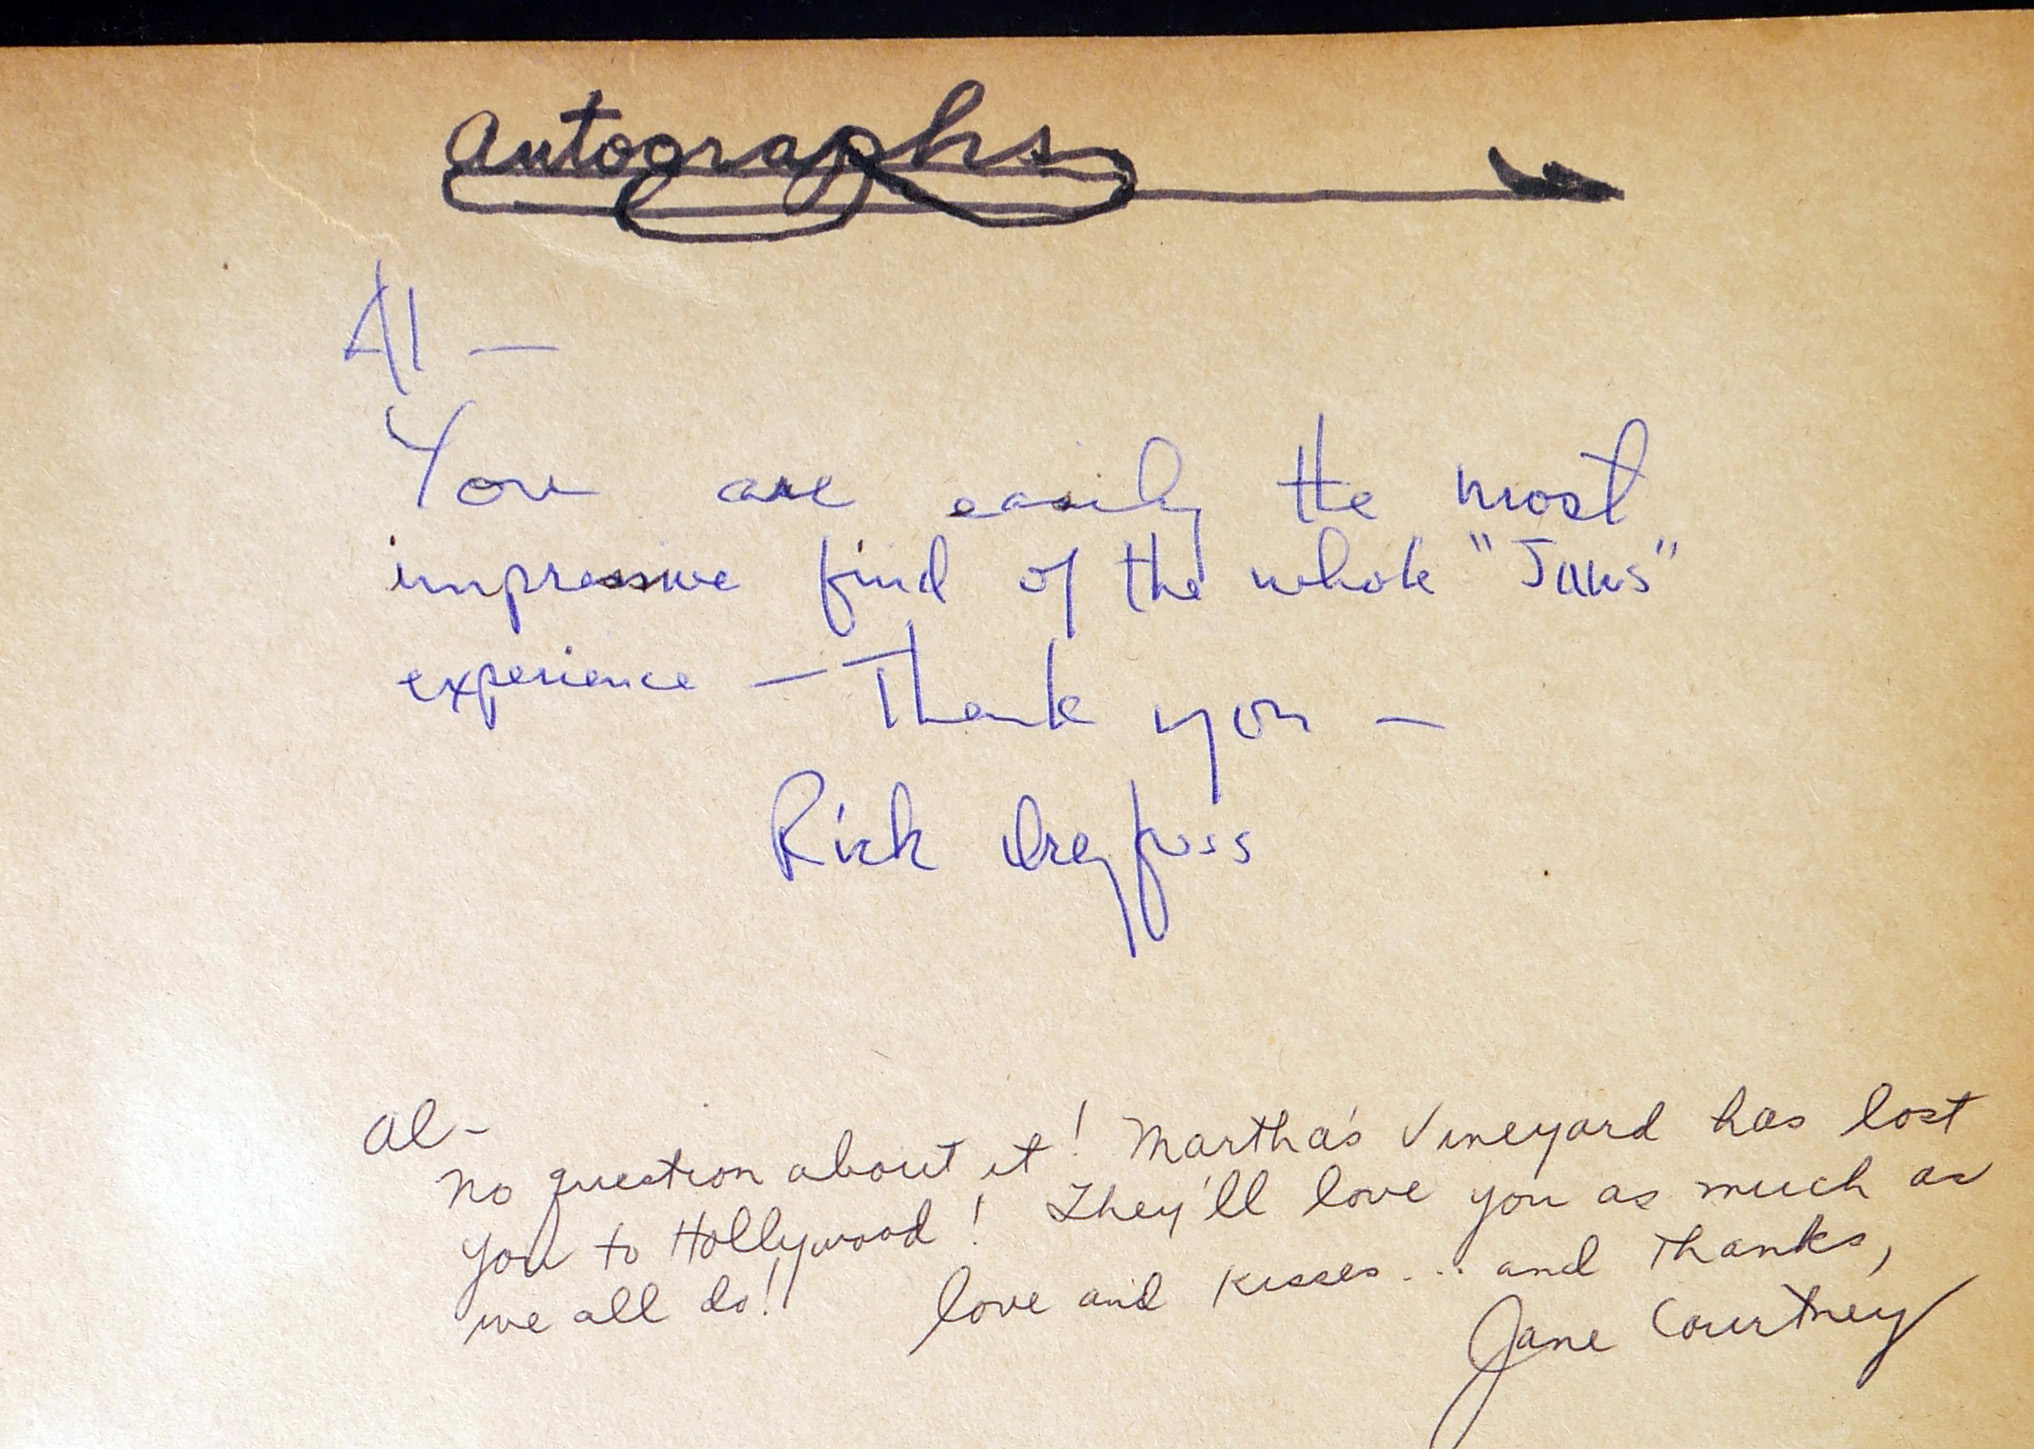 autographs
Al —
You are easily the most
impressive find of the whole "Jaws"
experience — Thank you —
Rick Dreyfuss
Al-
No question about it! Martha's Vineyard has lost
you to Hollywood! They'll love you as much as
we all do! love and kisses... and thanks,
Jane Courtney